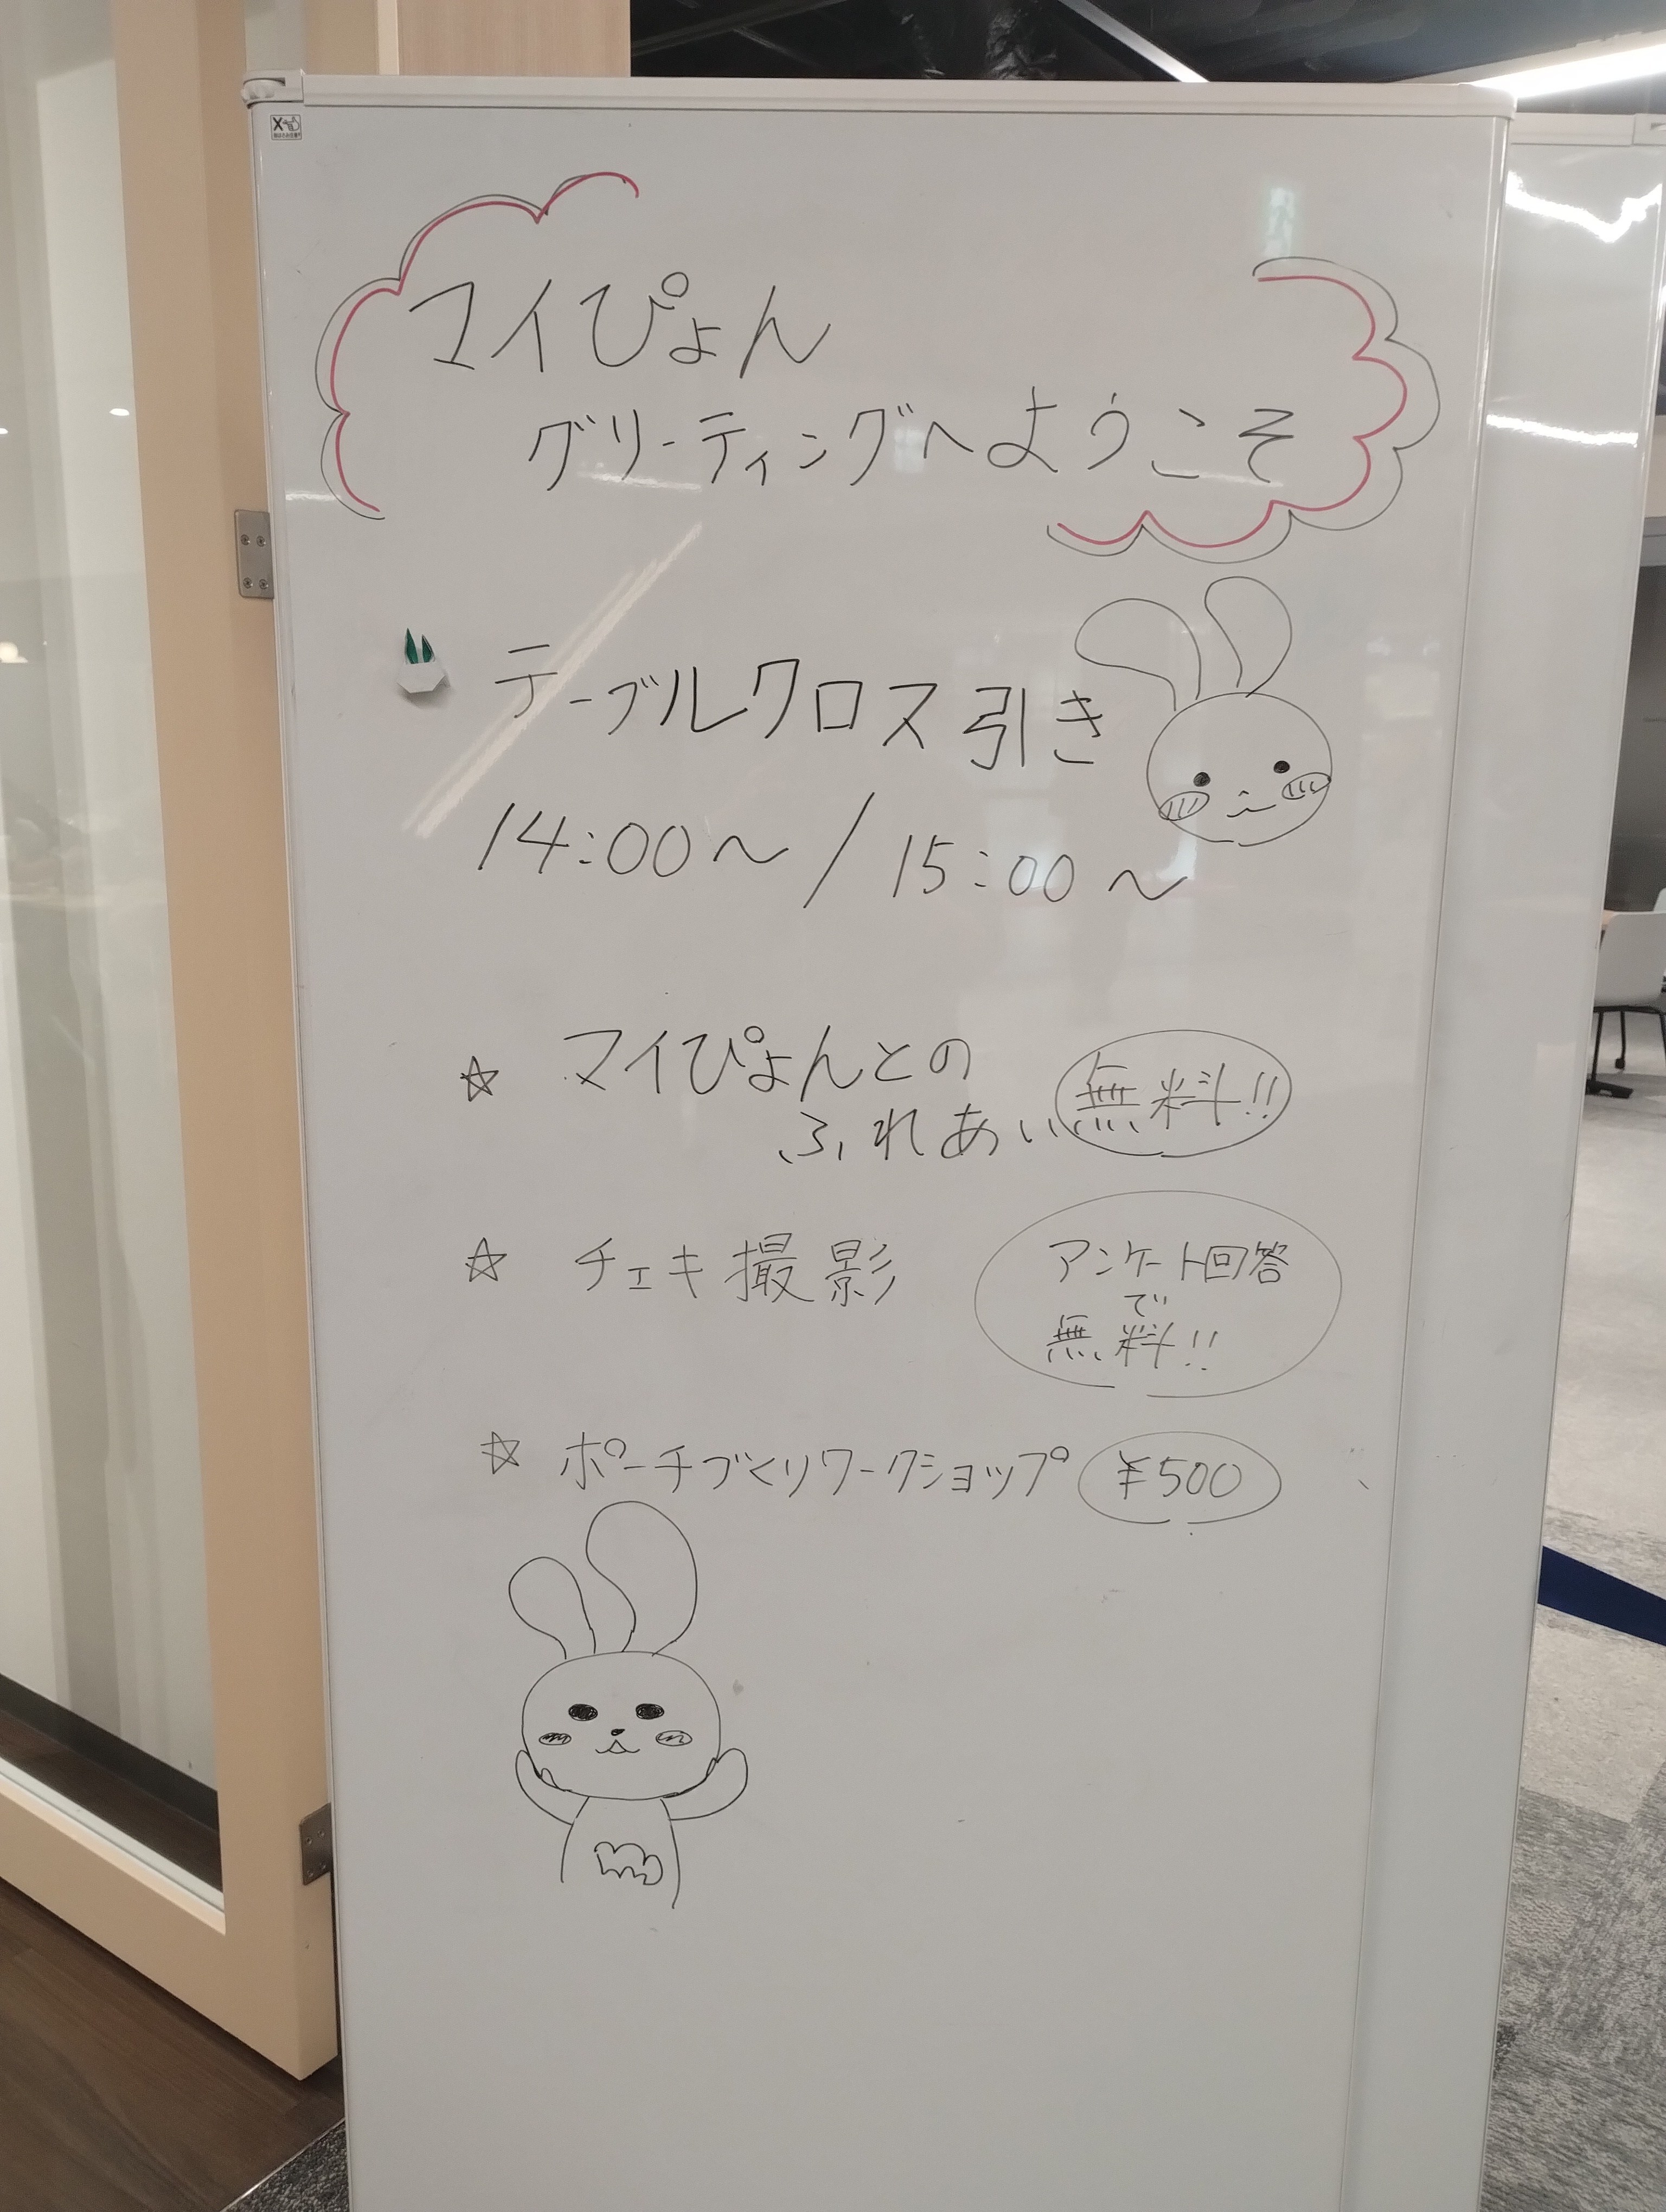 マイぴょん
グリーティングへようこそ
テーブルクロス引き
14:00〜/15:00〜
☆ マイぴょんとの
ふれあい 無料!!
☆ チェキ撮影
アンケート回答
で
無料!!
☆ ポーチづくりワークショップ ¥500